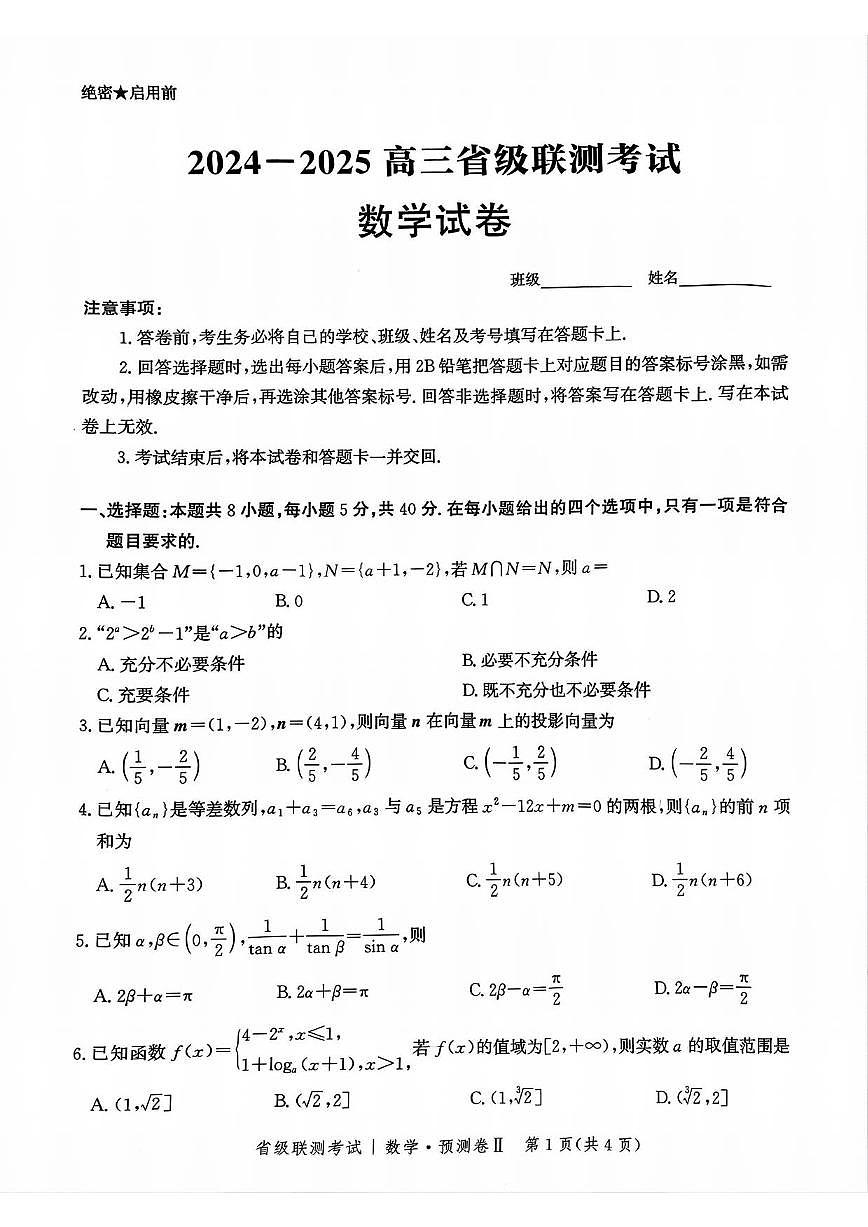 绝密★启用前
2024—2025 高三省级联测考试
数学试卷
班级________ 姓名________
注意事项:
1. 答卷前,考生务必将自己的学校、班级、姓名及考号填写在答题卡上.
2. 回答选择题时,选出每小题答案后,用 2B 铅笔把答题卡上对应题目的答案标号涂黑,如需
改动,用橡皮擦干净后,再选涂其他答案标号. 回答非选择题时,将答案写在答题卡上. 写在本试
卷上无效.
3. 考试结束后,将本试卷和答题卡一并交回.
一、选择题:本题共 8 小题,每小题 5 分,共 40 分. 在每小题给出的四个选项中,只有一项是符合
题目要求的.
1. 已知集合 M={-1,0,a-1},N={a+1,-2},若 M∩N=N,则 a=
A. -1 B. 0 C. 1 D. 2
2. “2^a>2^b-1”是“a>b”的
A. 充分不必要条件 B. 必要不充分条件
C. 充要条件 D. 既不充分也不必要条件
3. 已知向量 m=(1,-2),n=(4,1),则向量 n 在向量 m 上的投影向量为
A. (1/5,-2/5) B. (2/5,-4/5) C. (-1/5,2/5) D. (-2/5,4/5)
4. 已知{a_n}是等差数列,a_1+a_3=a_6,a_3 与 a_5 是方程 x²-12x+m=0 的两根,则{a_n}的前 n 项
和为
A. 1/2 n(n+3) B. 1/2 n(n+4) C. 1/2 n(n+5) D. 1/2 n(n+6)
5. 已知 α,β∈(0,π/2),1/tan α+1/tan β=1/sin α,则
A. 2β+α=π B. 2α+β=π C. 2β-α=π/2 D. 2α-β=π/2
6. 已知函数 f(x)={4-2^x,x≤1, 1+log_a(x+1),x>1, 若 f(x)的值域为[2,+∞),则实数 a 的取值范围是
A. (1,√2] B. (√2,2] C. (1,∛2] D. (∛2,2]
省级联测考试 | 数学·预测卷Ⅱ 第 1 页(共 4 页)